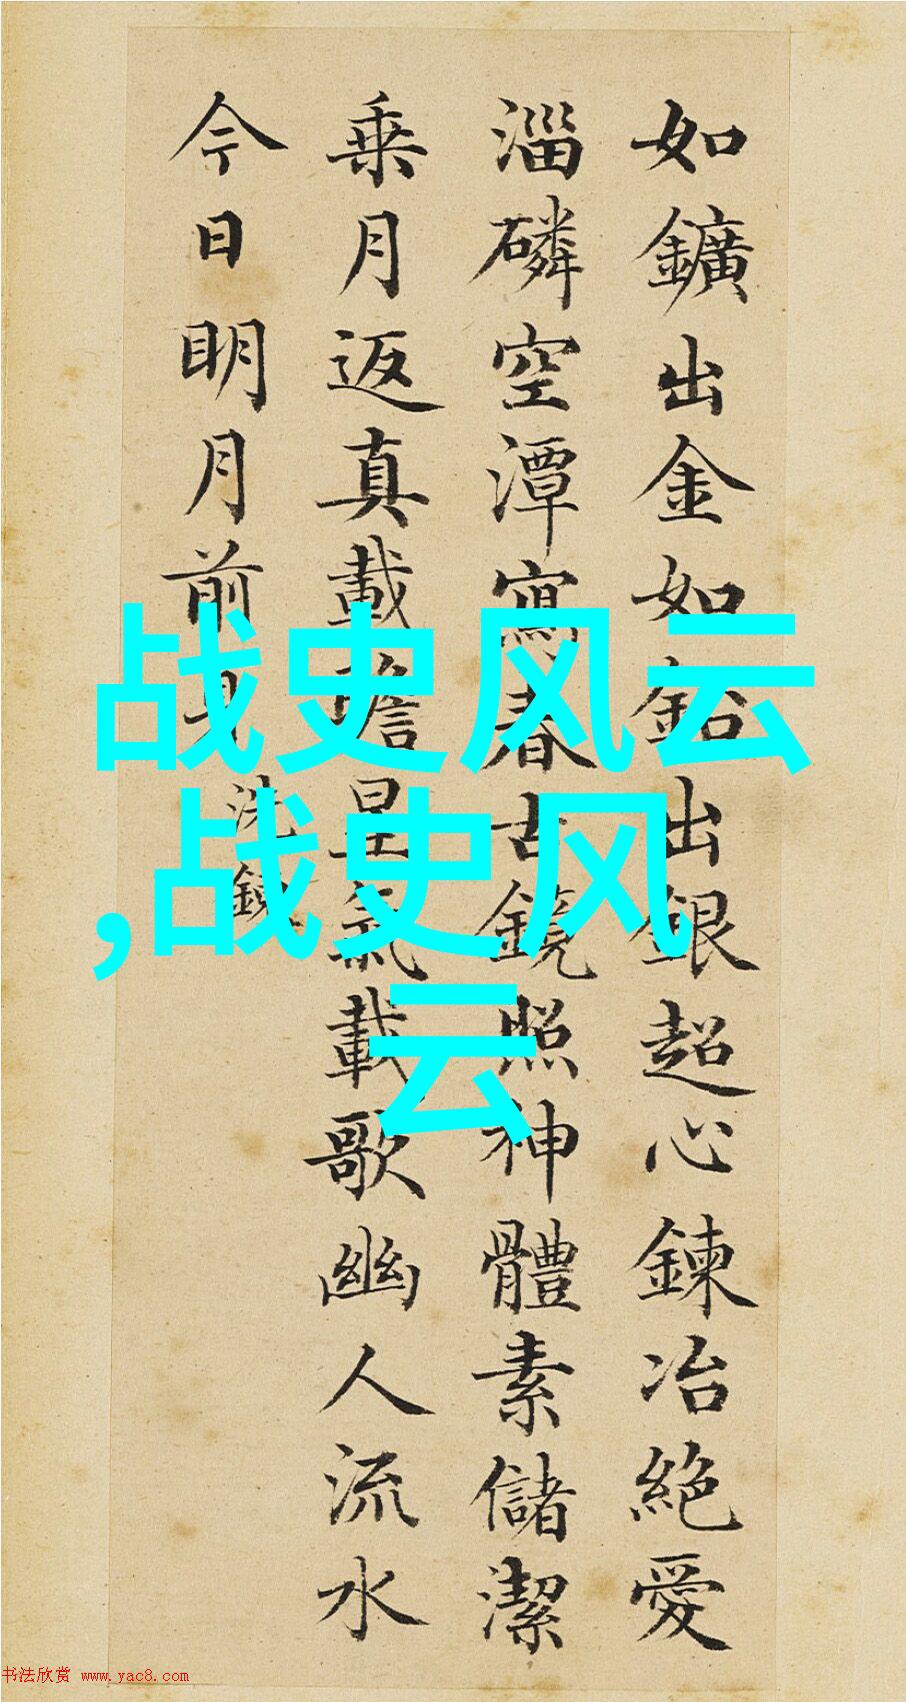 如鑛出金如鉛出銀超心鍊冶絶愛
淄磷空潭寫春古鏡照神體素儲潔
乘月返真載瞻星氣載歌幽人流水
今日明月前身
洗鍊
战史风云
,战史风
云
书法欣赏 www.yac8.com